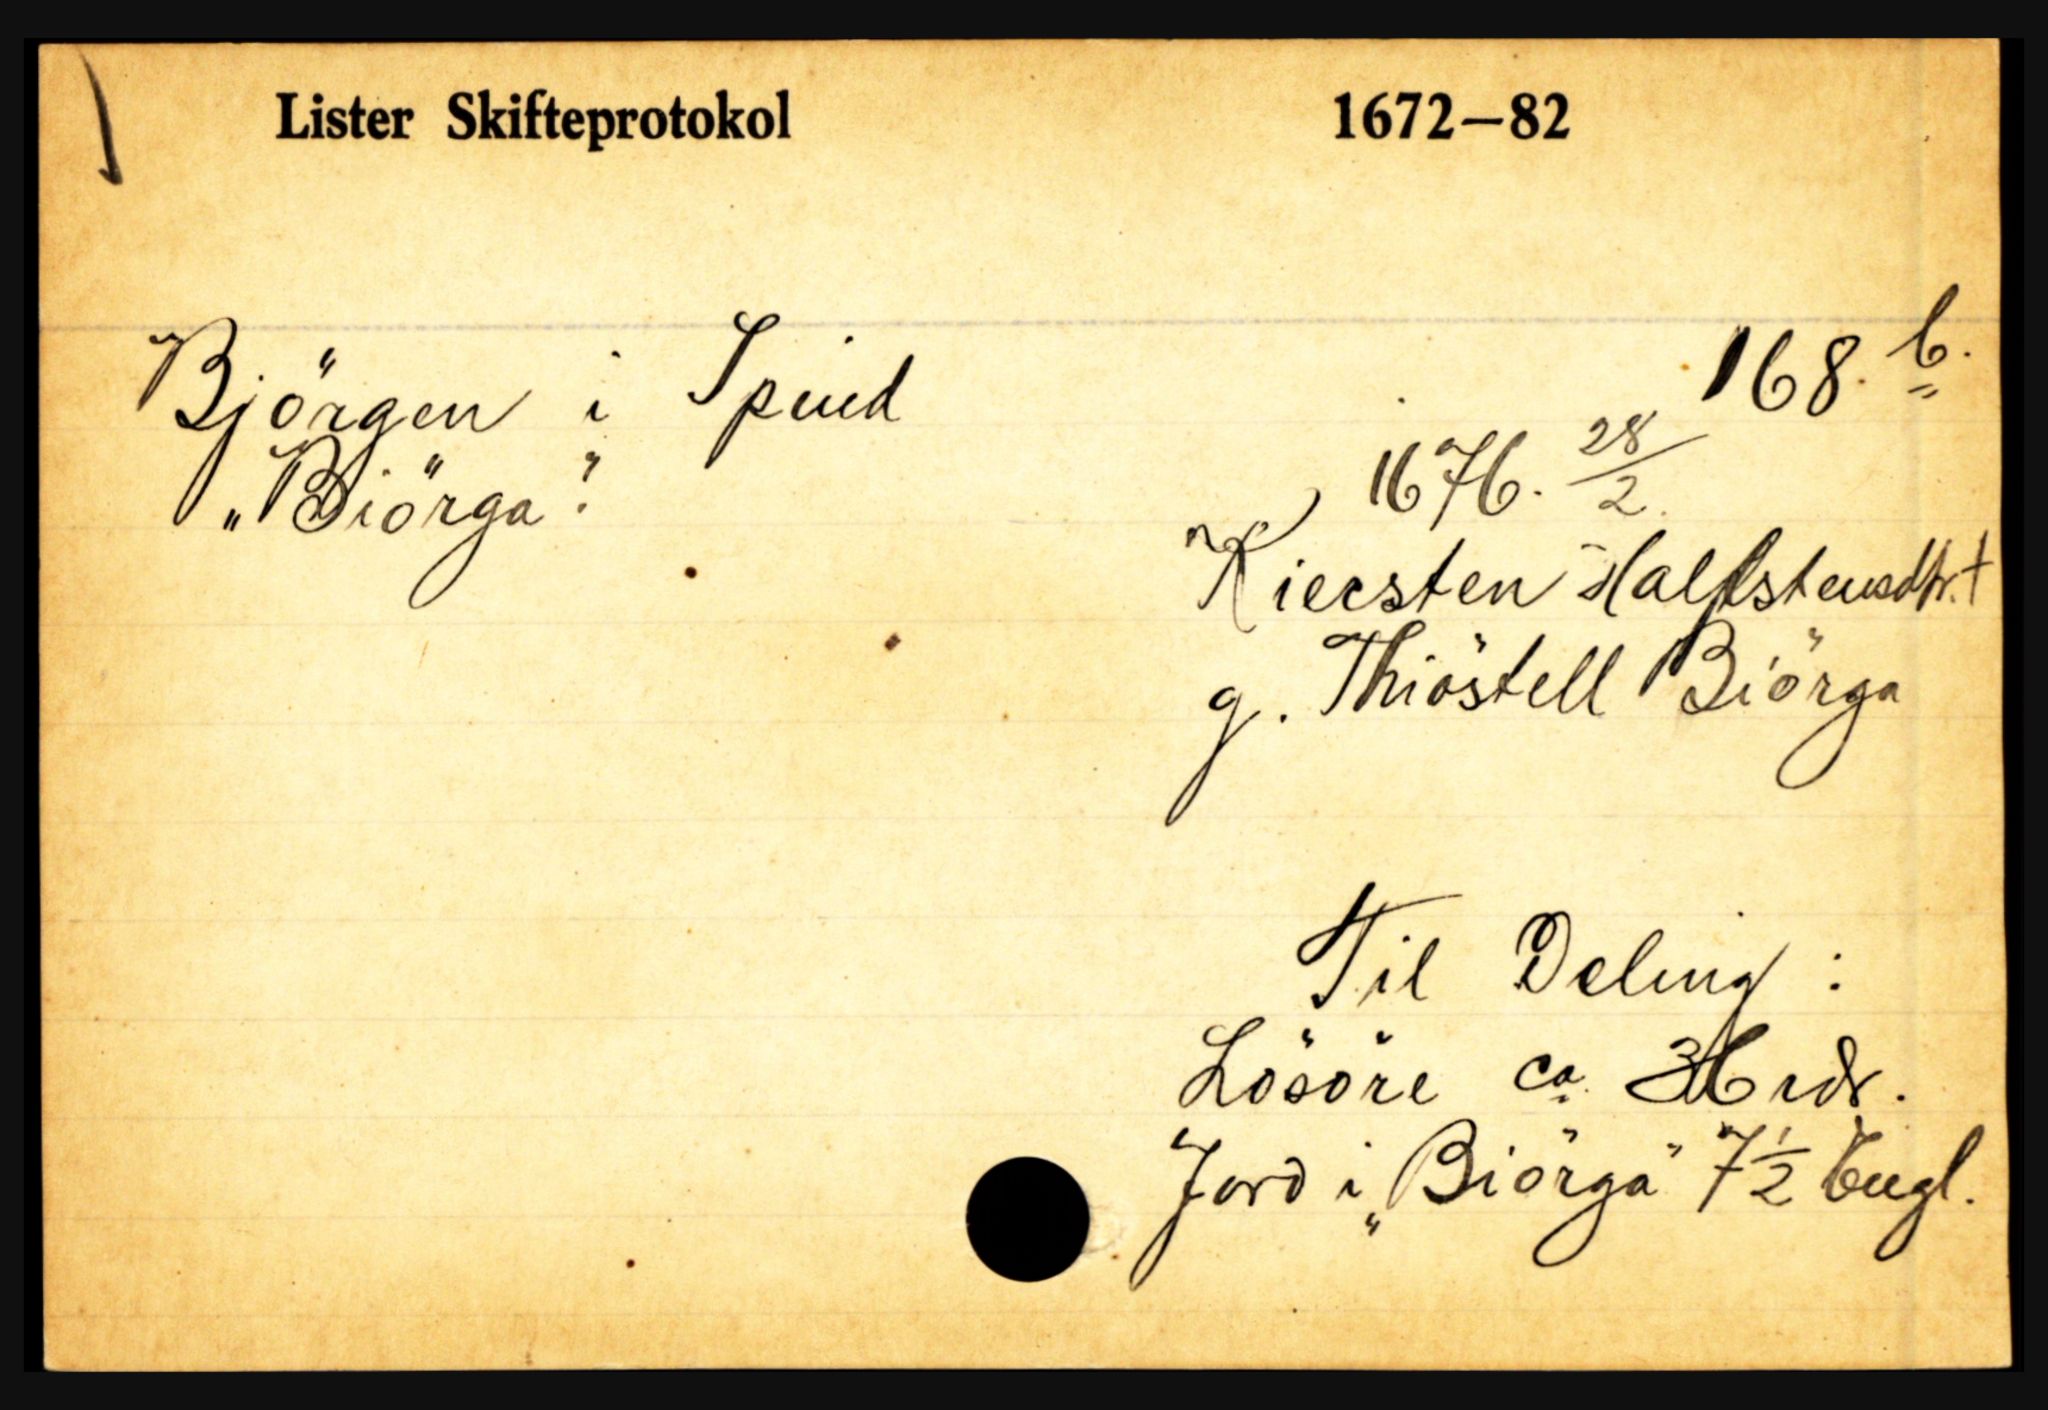 Lister Skifteprotokol 1672–82
Björgen i Spind 168. b.
"Biörga". 1676. 28/2.
Kiersten Halfstensdtr. †
g. Thiöstell Biörga
Til Deling :
Lösöre ca. 36 rdr.
Jord i "Biörga" 7 1/2 eugl.